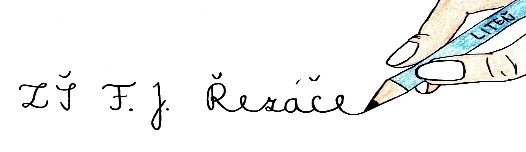 ZŠ F. J. Řezáče
LITEŇ